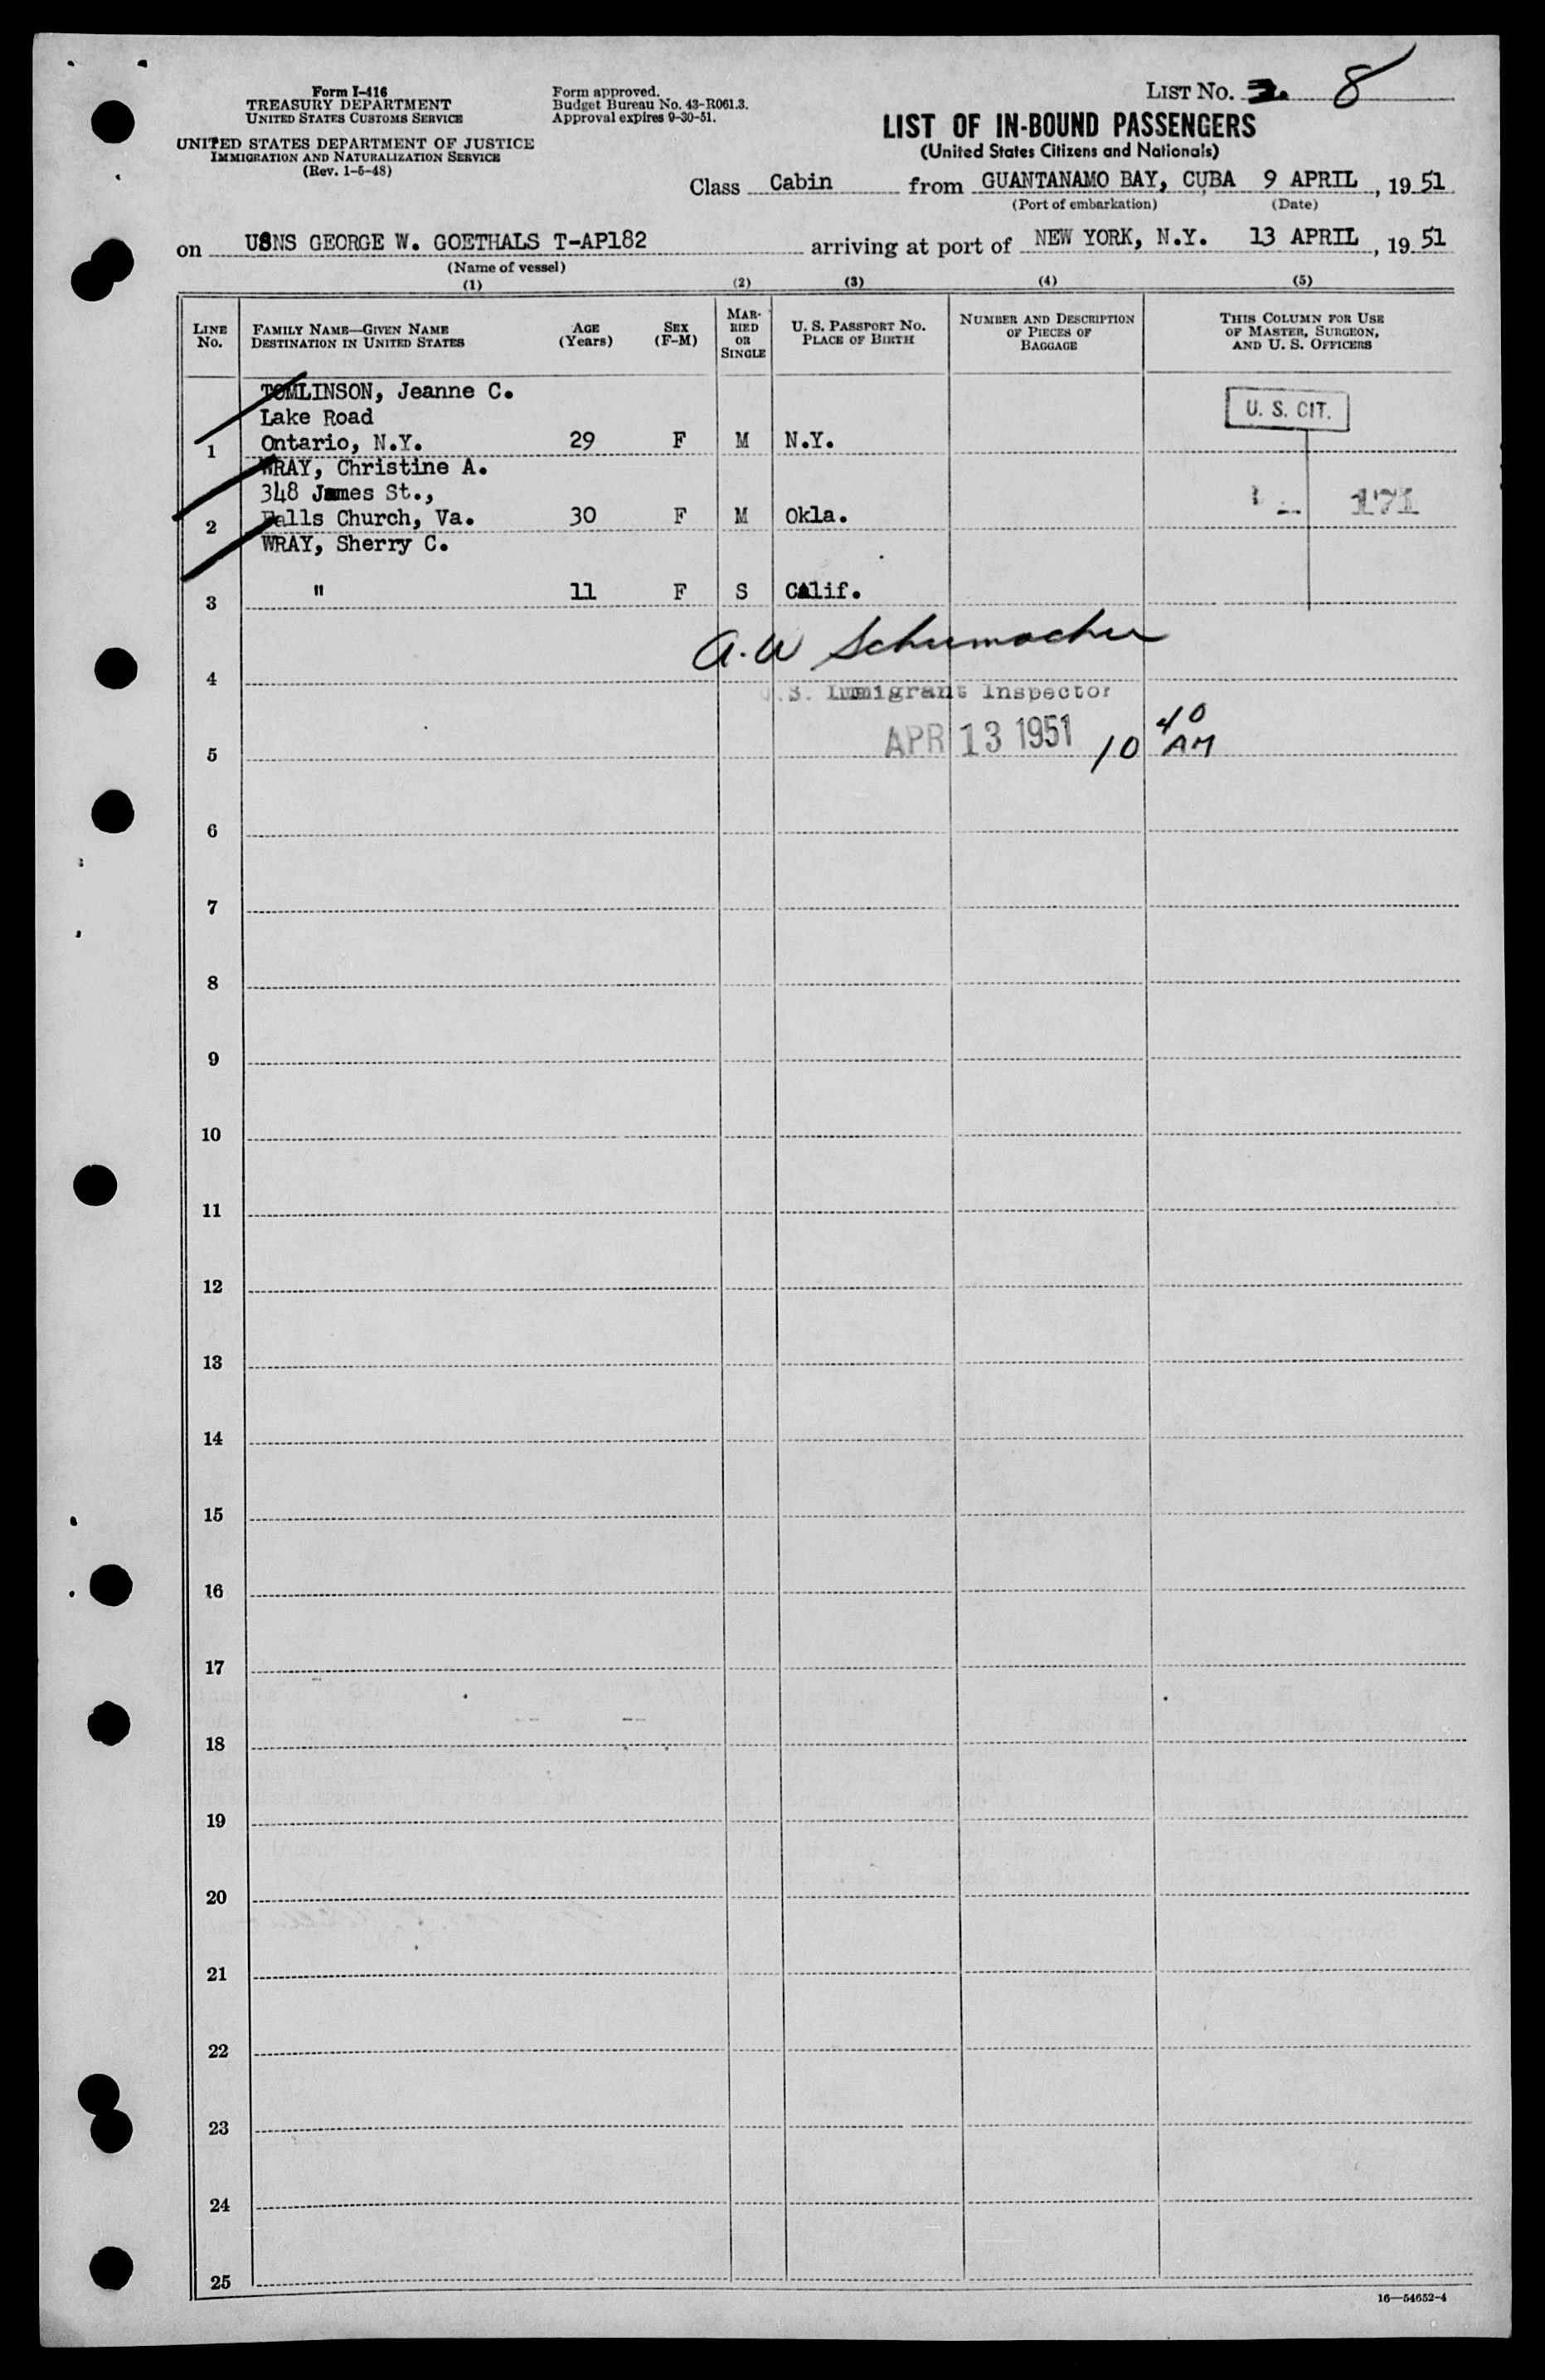 Form I-416
TREASURY DEPARTMENT
UNITED STATES CUSTOMS SERVICE
UNITED STATES DEPARTMENT OF JUSTICE
IMMIGRATION AND NATURALIZATION SERVICE
(Rev. 1-5-48)
Form approved.
Budget Bureau No. 43-R061.3.
Approval expires 9-30-51.
LIST NO. 8
LIST OF IN-BOUND PASSENGERS
(United States Citizens and Nationals)
Class Cabin from GUANTANAMO BAY, CUBA 9 APRIL, 1951
(Port of embarkation) (Date)
on USNS GEORGE W. GOETHALS T-AP182 arriving at port of NEW YORK, N.Y. 13 APRIL, 1951
(Name of vessel)
(1) (2) (3) (4) (5)
LINE NO.
FAMILY NAME—GIVEN NAME
DESTINATION IN UNITED STATES
AGE (Years)
SEX (F-M)
MARRIED OR SINGLE
U. S. PASSPORT NO.
PLACE OF BIRTH
NUMBER AND DESCRIPTION OF PIECES OF BAGGAGE
THIS COLUMN FOR USE OF MASTER, SURGEON, AND U. S. OFFICERS
TOMLINSON, Jeanne C.
Lake Road
1 Ontario, N.Y. 29 F M N.Y.
U. S. CIT.
WRAY, Christine A.
348 James St.,
2 Falls Church, Va. 30 F M Okla.
171
WRAY, Sherry C.
3 " 11 F S Calif.
A. W Schumacher
4
U.S. Immigrant Inspector
5 APR 13 1951 10 40 AM
6
7
8
9
10
11
12
13
14
15
16
17
18
19
20
21
22
23
24
25
16—54652-4